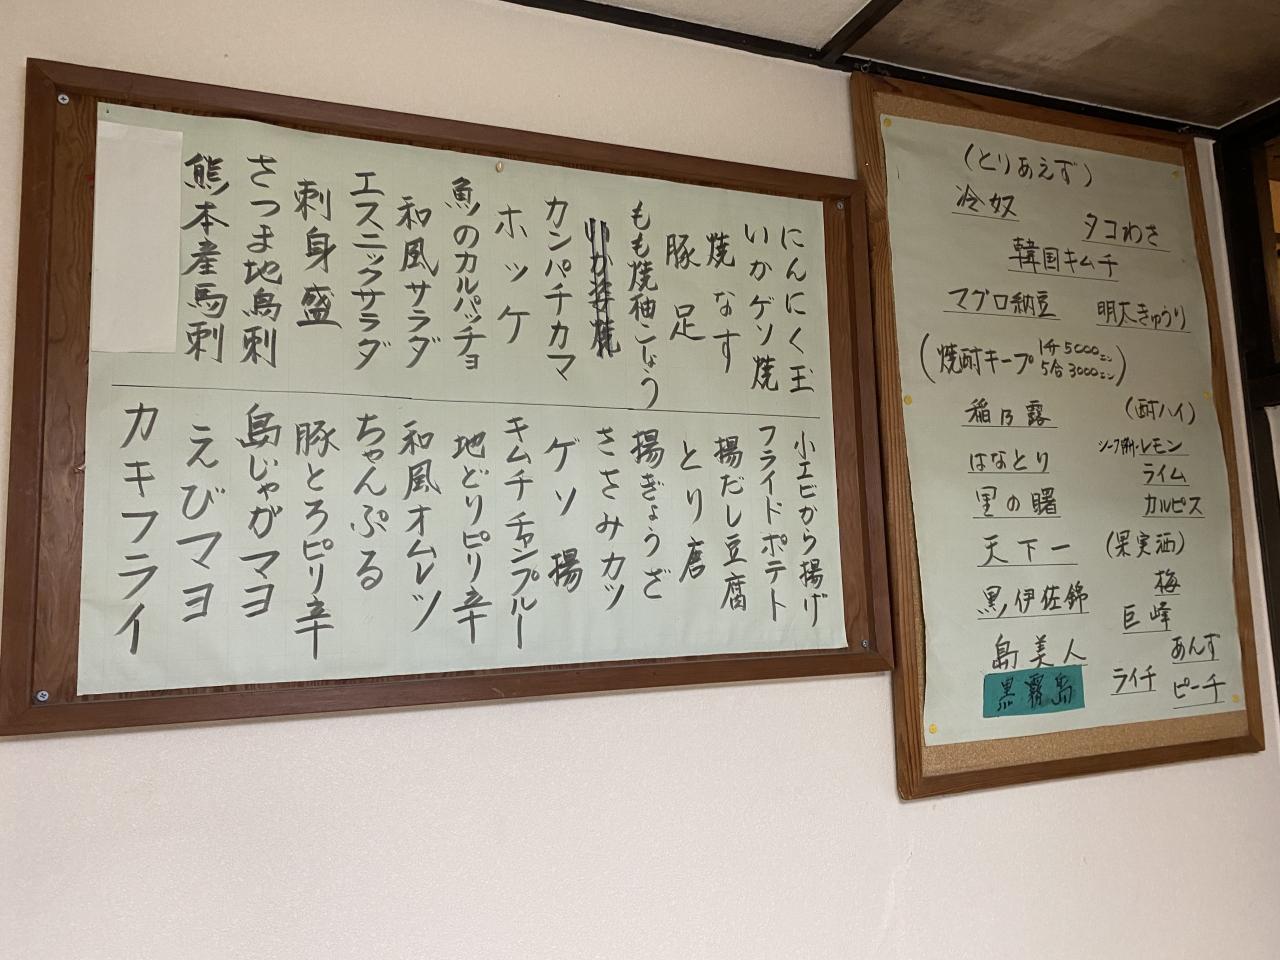 にんにく玉
いかゲソ焼
焼なす
豚足
もも焼柚こしょう
カンパチカマ
ホッケ
魚のカルパッチョ
和風サラダ
エスニックサラダ
刺身盛
さつま地鳥刺
熊本産馬刺
小エビから揚げ
フライドポテト
揚だし豆腐
とり唐
揚ぎょうざ
ささみカツ
ゲソ揚
キムチチャンプルー
地どりピリ辛
和風オムレツ
ちゃんぷる
豚とろピリ辛
島じゃがマヨ
えびマヨ
カキフライ
(とりあえず)
冷奴
タコわさ
韓国キムチ
マグロ納豆
明太きゅうり
(焼酎キープ 1升5000エン
5合3000エン)
稲乃露
はなとり
里の曙
天下一
黒伊佐錦
島美人
黒霧島
(酎ハイ)
レモン
ライム
カルピス
(果実酒)
梅
巨峰
あんず
ライチ
ピーチ